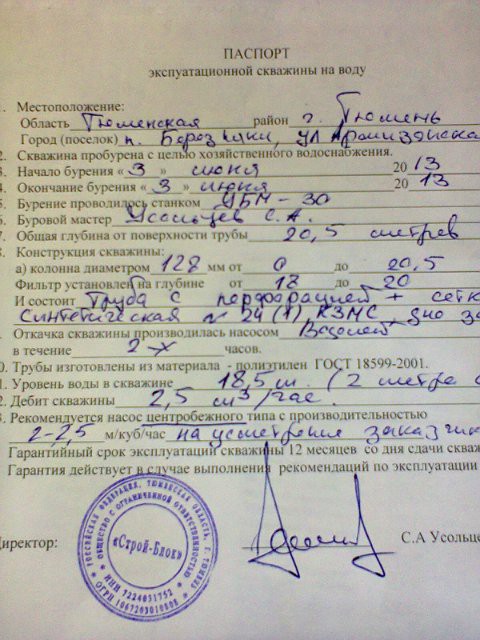 ПАСПОРТ
экспуатационной скважины на воду
1. Местоположение:
Область Тюменская район г. Тюмень
Город (поселок) п. Березняки, ул
2. Скважина пробурена с целью хозяйственного водоснабжения.
3. Начало бурения « 3 » июня 20 13
4. Окончание бурения « 3 » июня 20 13
5. Бурение проводилось станком УБМ-30
6. Буровой мастер Усольцев С.А.
7. Общая глубина от поверхности трубы 20,5 метрев
8. Конструкция скважины:
а) колонна диаметром 128 мм от 0 до 20,5
Фильтр установлен на глубине от 18 до 20
И состоит Труба с перфарацией + сетк
Синтетическая № 24 (1), КЗМС, дно за
. Откачка скважины производилась насосом Водолей
в течение 2-х часов.
0. Трубы изготовлены из материала - полиэтилен ГОСТ 18599-2001.
1. Уровень воды в скважине 18,5 м. (2 метра
2. Дебит скважины 2,5 см3/час.
3. Рекомендуется насос центробежного типа с производительностью
2-2,5 м/куб/час на усмотрение заказчик
Гарантийный срок эксплуатации скважины 12 месяцев со дня сдачи скваж
Гарантия действует в случае выполнения рекомендаций по эксплуатации
Директор: С.А Усольце
РОССИЙСКАЯ ФЕДЕРАЦИЯ, ТЮМЕНСКАЯ ОБЛАСТЬ, Г. ТЮМЕНЬ
ОБЩЕСТВО С ОГРАНИЧЕННОЙ ОТВЕТСТВЕННОСТЬЮ
«Строй-Блок»
ИНН 7224031752
ОГРН 1067203010808